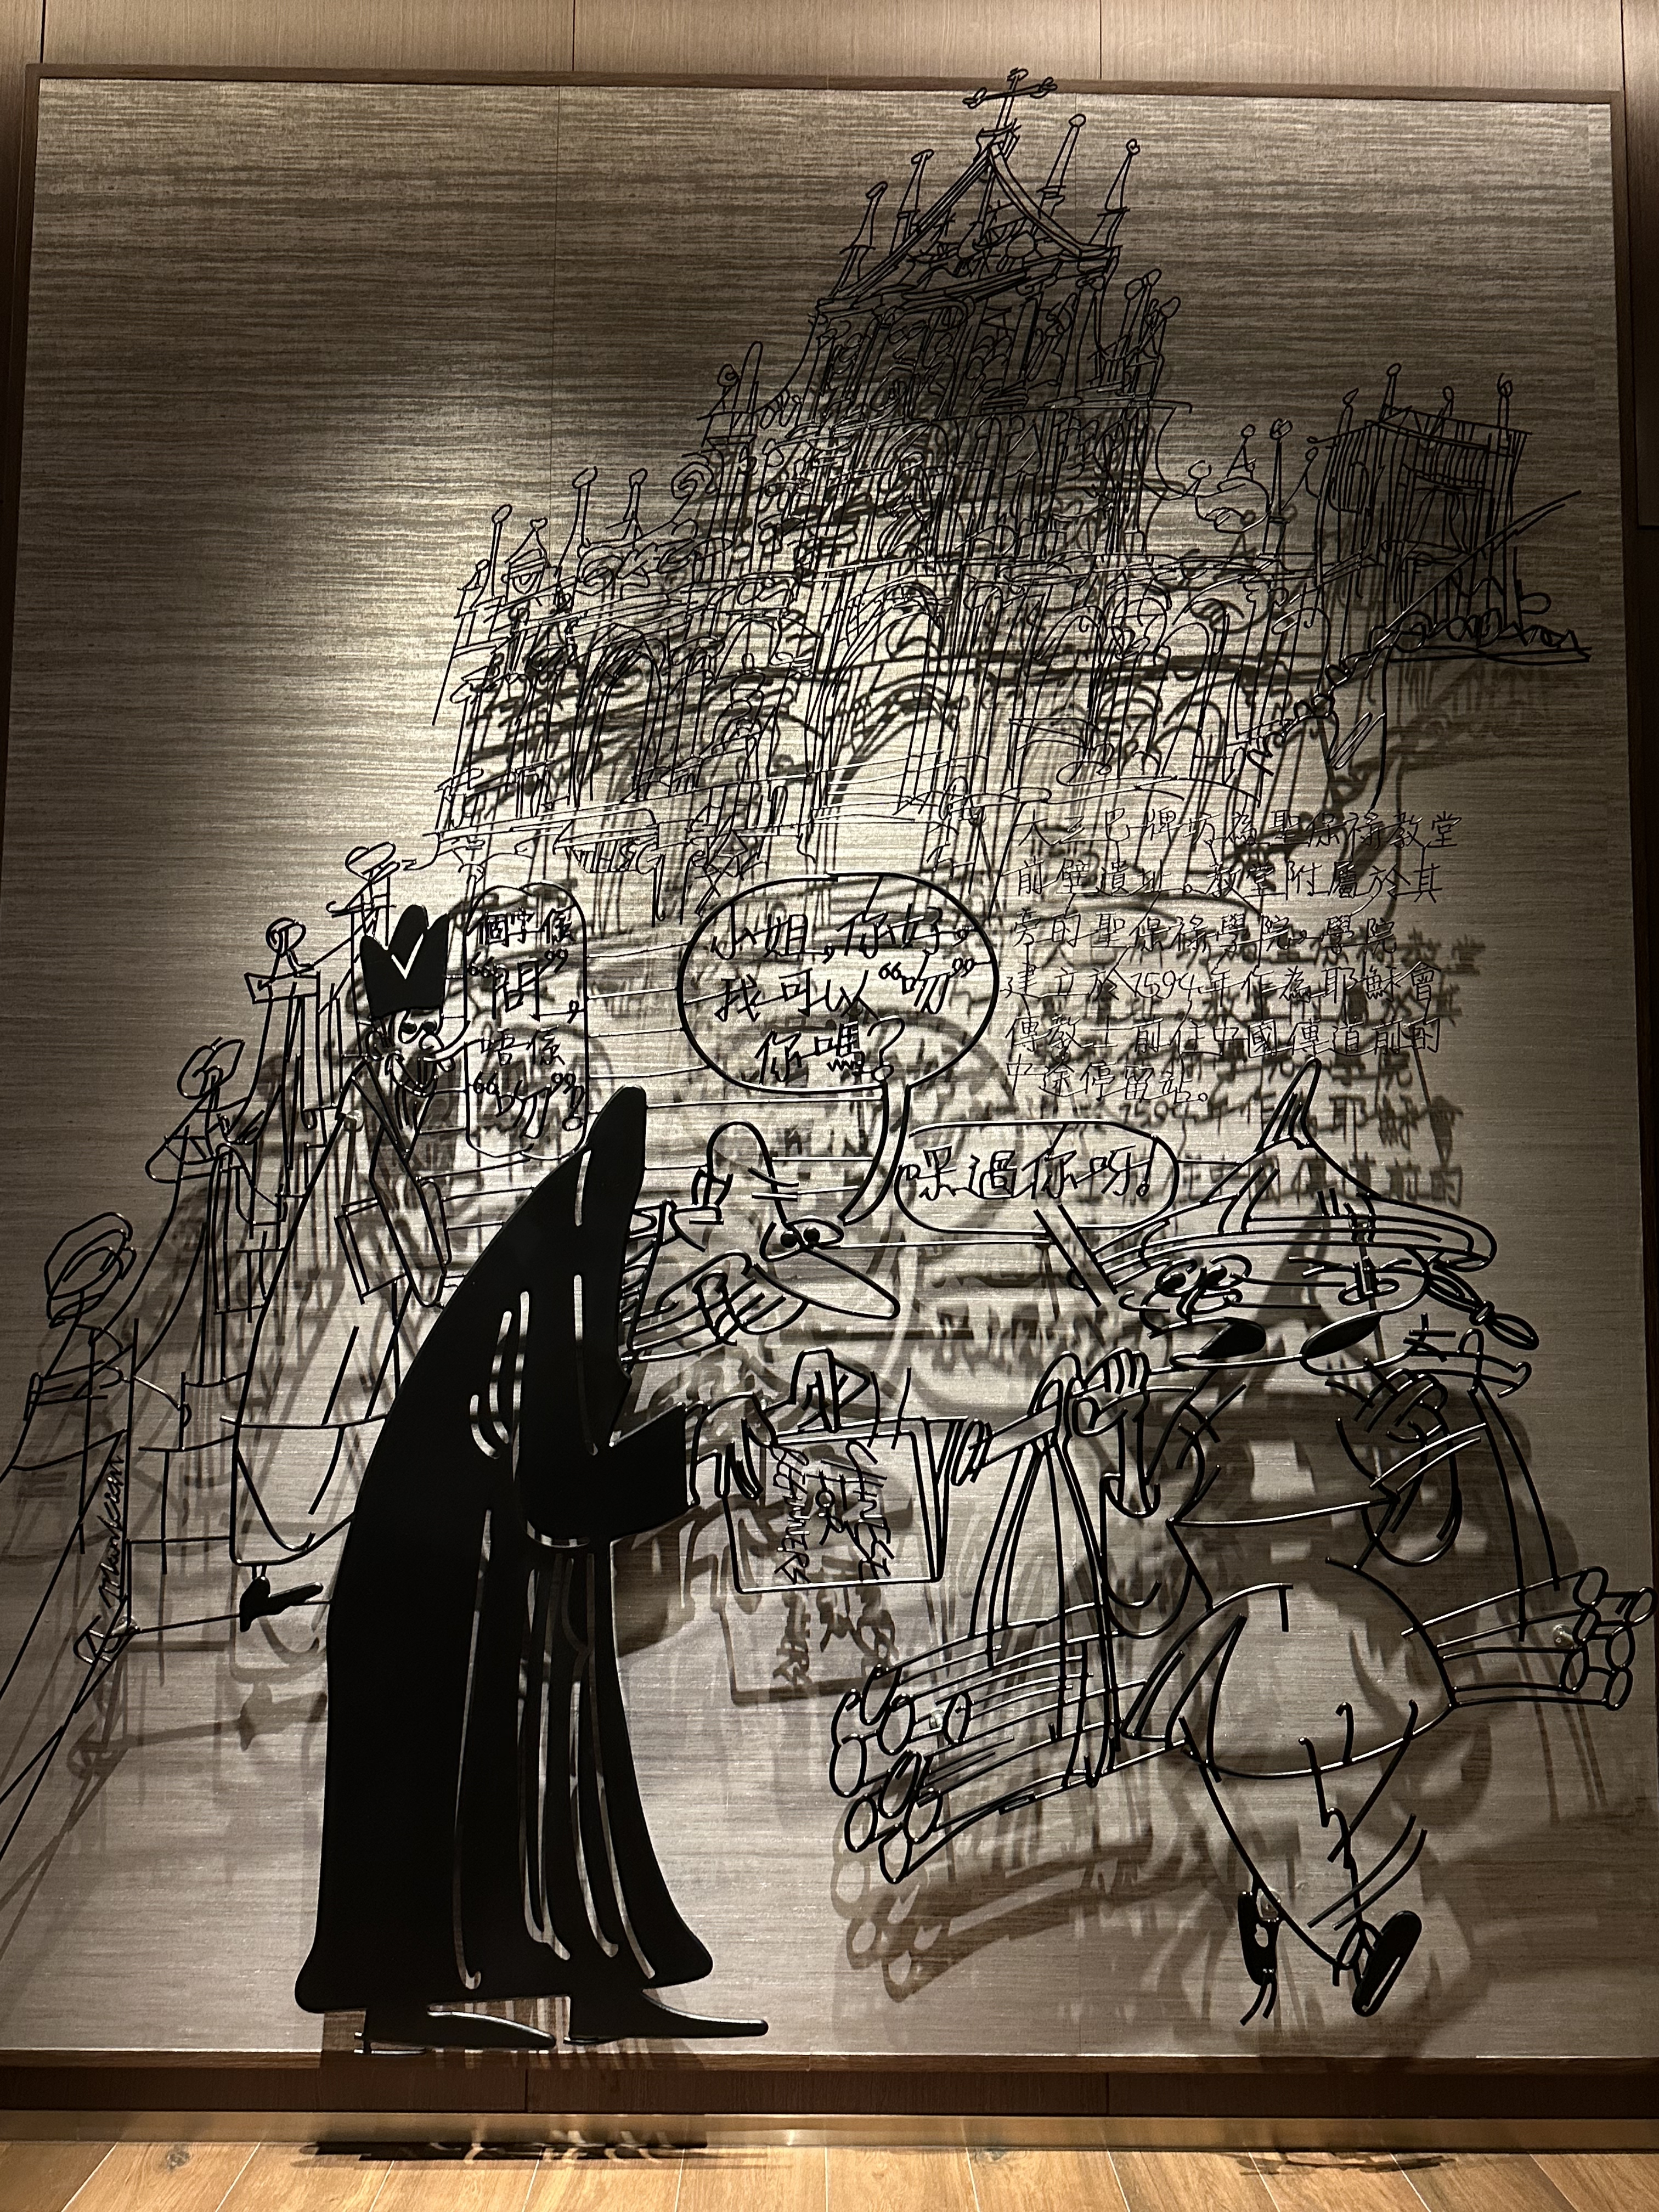 大三巴牌坊為聖保祿教堂
前壁遺址。教堂附屬於其
旁的聖保祿學院。學院
建立於1594年作為耶穌會
傳教士前往中國傳道前的
中途停留站。
個字係
“問”，
唔係
“吻”？
小姐，你好，
我可以“吻”
你嗎？
嚟過你呀！
CHINESE
FOR
BEGINNERS